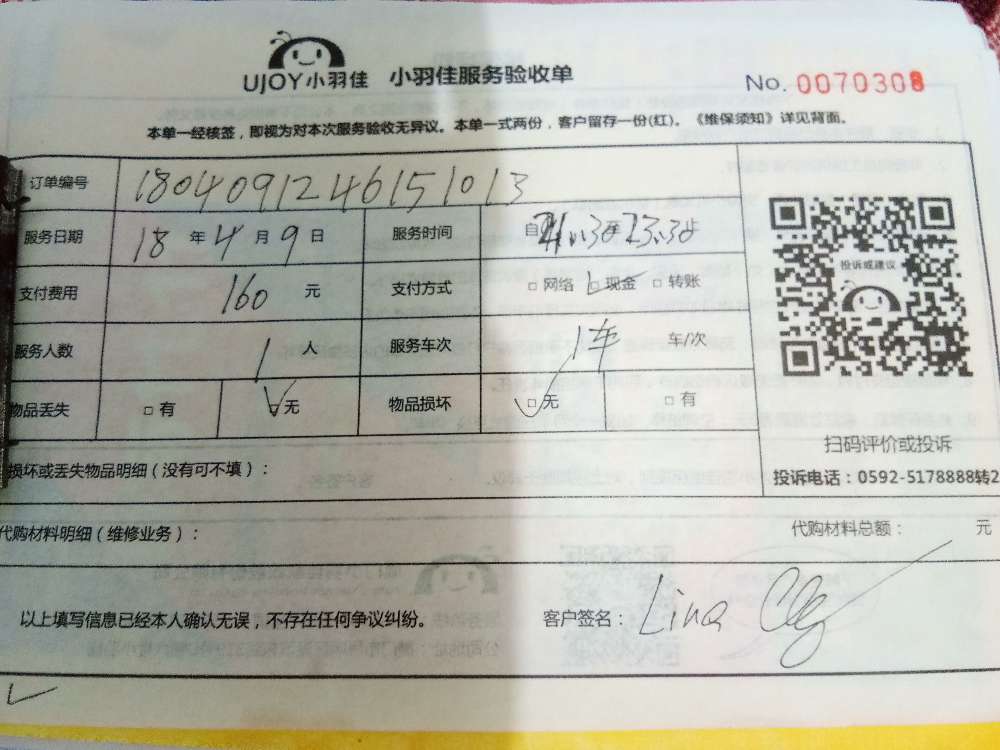 UJOY小羽佳 小羽佳服务验收单 No. 0070308
本单一经核签，即视为对本次服务验收无异议。本单一式两份，客户留存一份(红)。《维保须知》详见背面。
订单编号 180409124615101 3
服务日期 18 年 4 月 9 日 服务时间 自 21:30 至 23:30
支付费用 160 元 支付方式 □ 网络 □ 现金 □ 转账
服务人数 1 人 服务车次 1车 车/次
物品丢失 □ 有 ☑ 无 物品损坏 ☑ 无 □ 有
投诉或建议
扫码评价或投诉
投诉电话：0592-5178888转2
损坏或丢失物品明细（没有可不填）：
代购材料明细（维修业务）： 代购材料总额： 元
以上填写信息已经本人确认无误，不存在任何争议纠纷。 客户签名： Lina